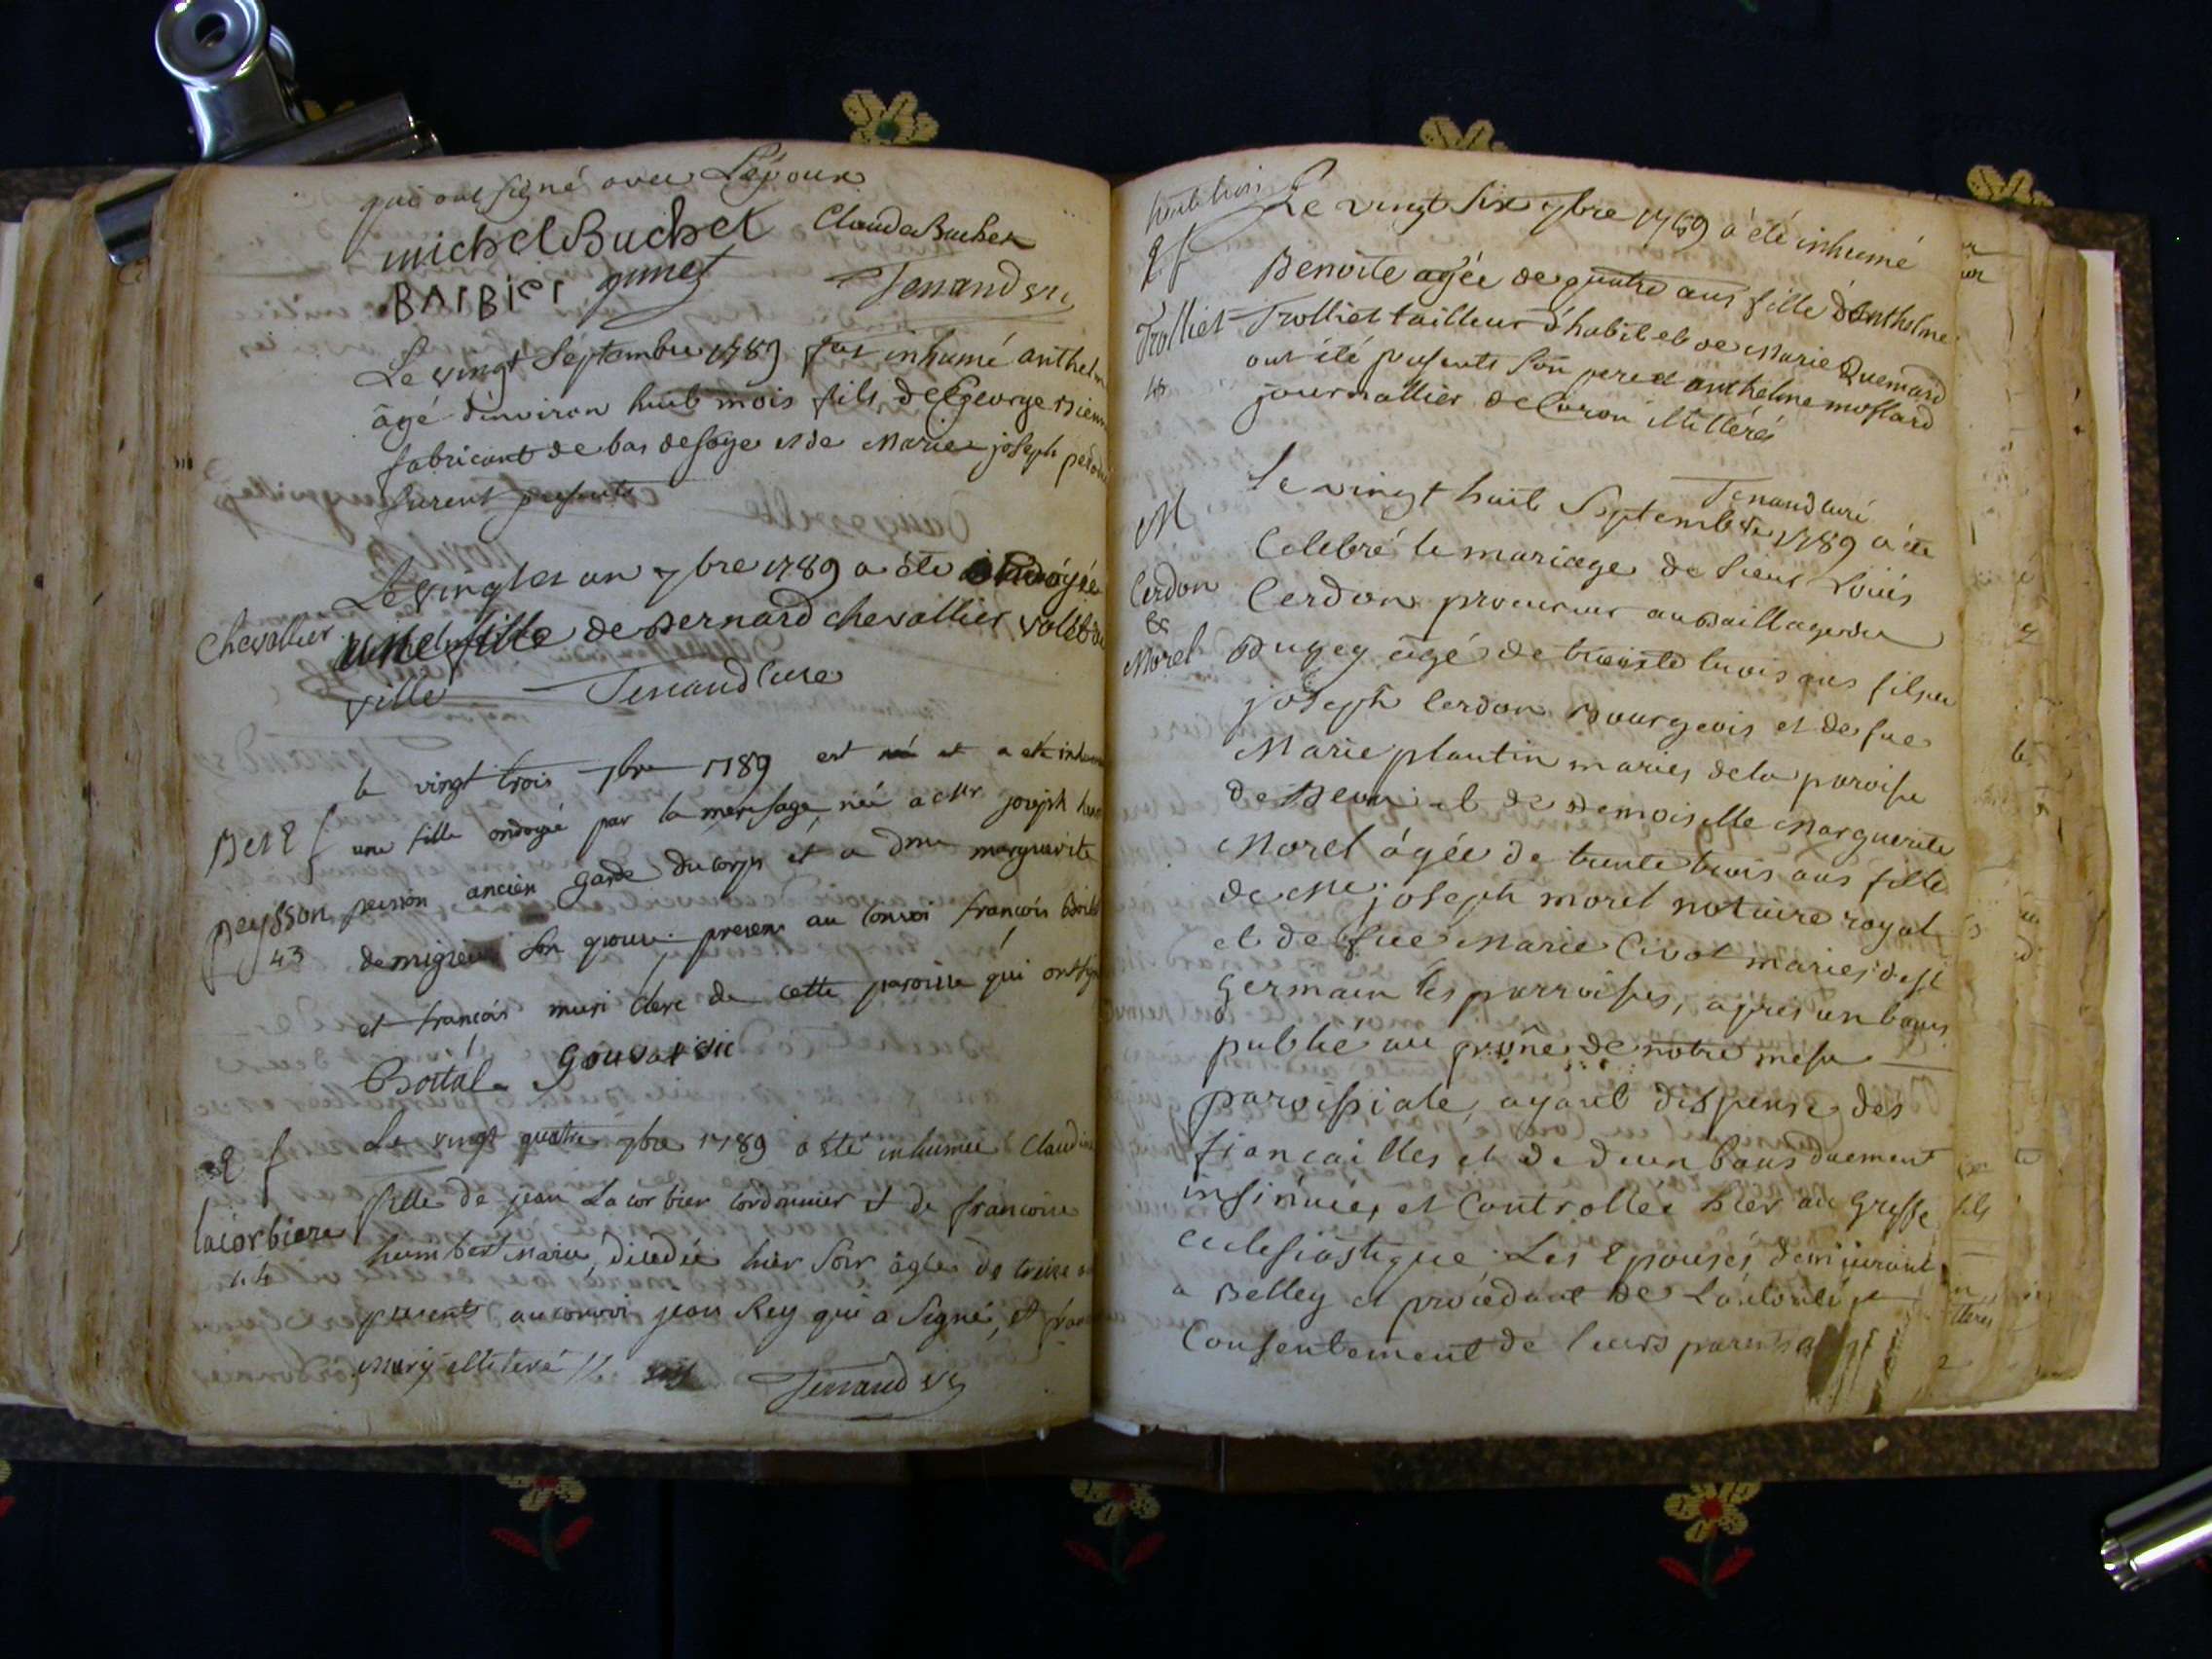 qui ont signé avec L'époux
michel Buchet Claude Buchet
BARBIER
Tenand
Le vingt Septembre 1789 fut inhumé anthel
âgé d'environ huit mois fils de George
fabricant de bas de soye et de Marie joseph
furent presents
Le vingt et un 7bre 1789 a été ondoyée
Chevallier une fille de Bernard chevallier valet de
ville Tenand Curé
le vingt trois 7bre 1789 est né et a été
une fille ondoyée par la mere sage, née a Mr joseph
peysson peisson ancien garde du corps et a dme marguerite
43 demigieu son epouse. presens au convoi françois
et françois muri clerc de cette paroisse qui ont
Bottal
Le vingt quatre 7bre 1789 a été inhumée Claudine
fille de jean Lacorbiere cordonnier et de francoise
lacorbiere humbert Marié, décedée hier soir âgée de treize
44 presents au convoi jean Rey qui a signé, et
mury illiteré Tenand
Le vingt six 7bre 1789 a été inhumé
Benoite agée de quatre ans fille d'Anthelme
Trolliet Trolliet tailleur d'habit et de Marie Quemard
ont été presents son pere et anthelme mostard
journallier de illittérés
Tenand Curé
M Le vingt huit Septembre 1789 a été
Celebré le mariage de Sieur Louis
Cerdon Cerdon procureur au Baillage du
& Bugey âgé de trente trois ans fils de
Morel joseph Cerdon Bourgeois et de fue
Marie plantin mariés de la paroisse
de et de Demoiselle Marguerite
Morel âgée de trente trois ans fille
de Me joseph morel notaire royal
et de fue Marie Civot mariés de St
Germain les parroisses, après un bans
publié au prône de notre messe
paroissiale, ayant dispense des
fiancailles et de deux bans duement
insinuée, et Controllée hier au Greffe
ecclesiastique. Les Epousés demeurant
a Belley et procédant de l'autorité et
Consentement de leurs parents